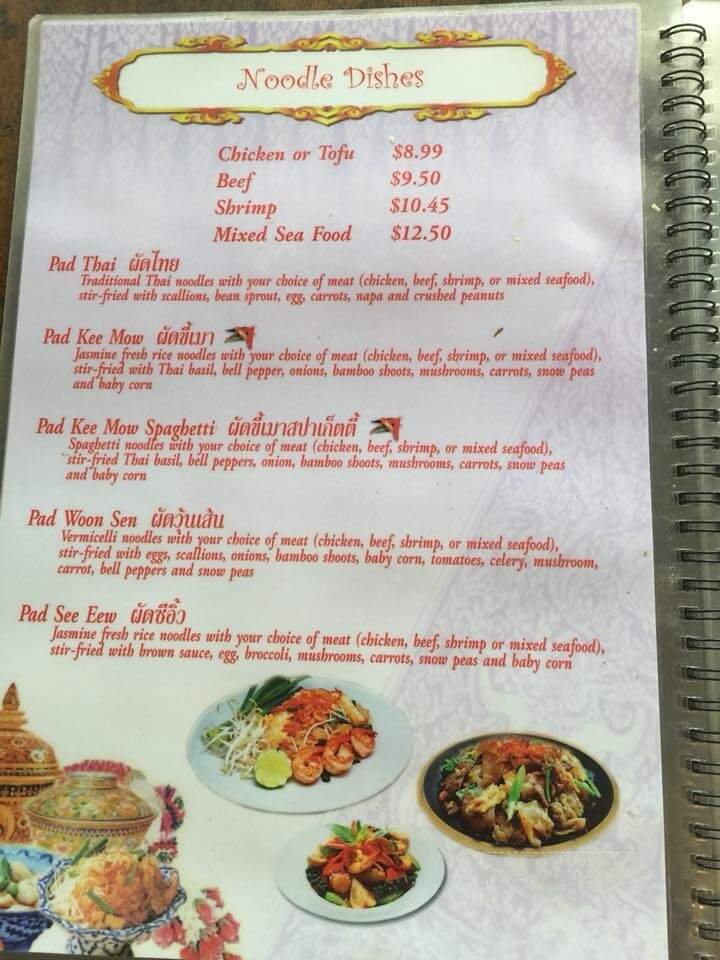 Noodle Dishes
Chicken or Tofu $8.99
Beef $9.50
Shrimp $10.45
Mixed Sea Food $12.50
Pad Thai ผัดไทย
Traditional Thai noodles with your choice of meat (chicken, beef, shrimp, or mixed seafood),
stir-fried with scallions, bean sprout, egg, carrots, napa and crushed peanuts
Pad Kee Mow ผัดขี้เมา
Jasmine fresh rice noodles with your choice of meat (chicken, beef, shrimp, or mixed seafood),
stir-fried with Thai basil, bell pepper, onions, bamboo shoots, mushrooms, carrots, snow peas
and baby corn
Pad Kee Mow Spaghetti ผัดขี้เมาสปาเก็ตตี้
Spaghetti noodles with your choice of meat (chicken, beef, shrimp, or mixed seafood),
stir-fried Thai basil, bell peppers, onion, bamboo shoots, mushrooms, carrots, snow peas
and baby corn
Pad Woon Sen ผัดวุ้นเส้น
Vermicelli noodles with your choice of meat (chicken, beef, shrimp, or mixed seafood),
stir-fried with eggs, scallions, onions, bamboo shoots, baby corn, tomatoes, celery, mushroom,
carrot, bell peppers and snow peas
Pad See Eew ผัดซีอิ้ว
Jasmine fresh rice noodles with your choice of meat (chicken, beef, shrimp or mixed seafood),
stir-fried with brown sauce, egg, broccoli, mushrooms, carrots, snow peas and baby corn